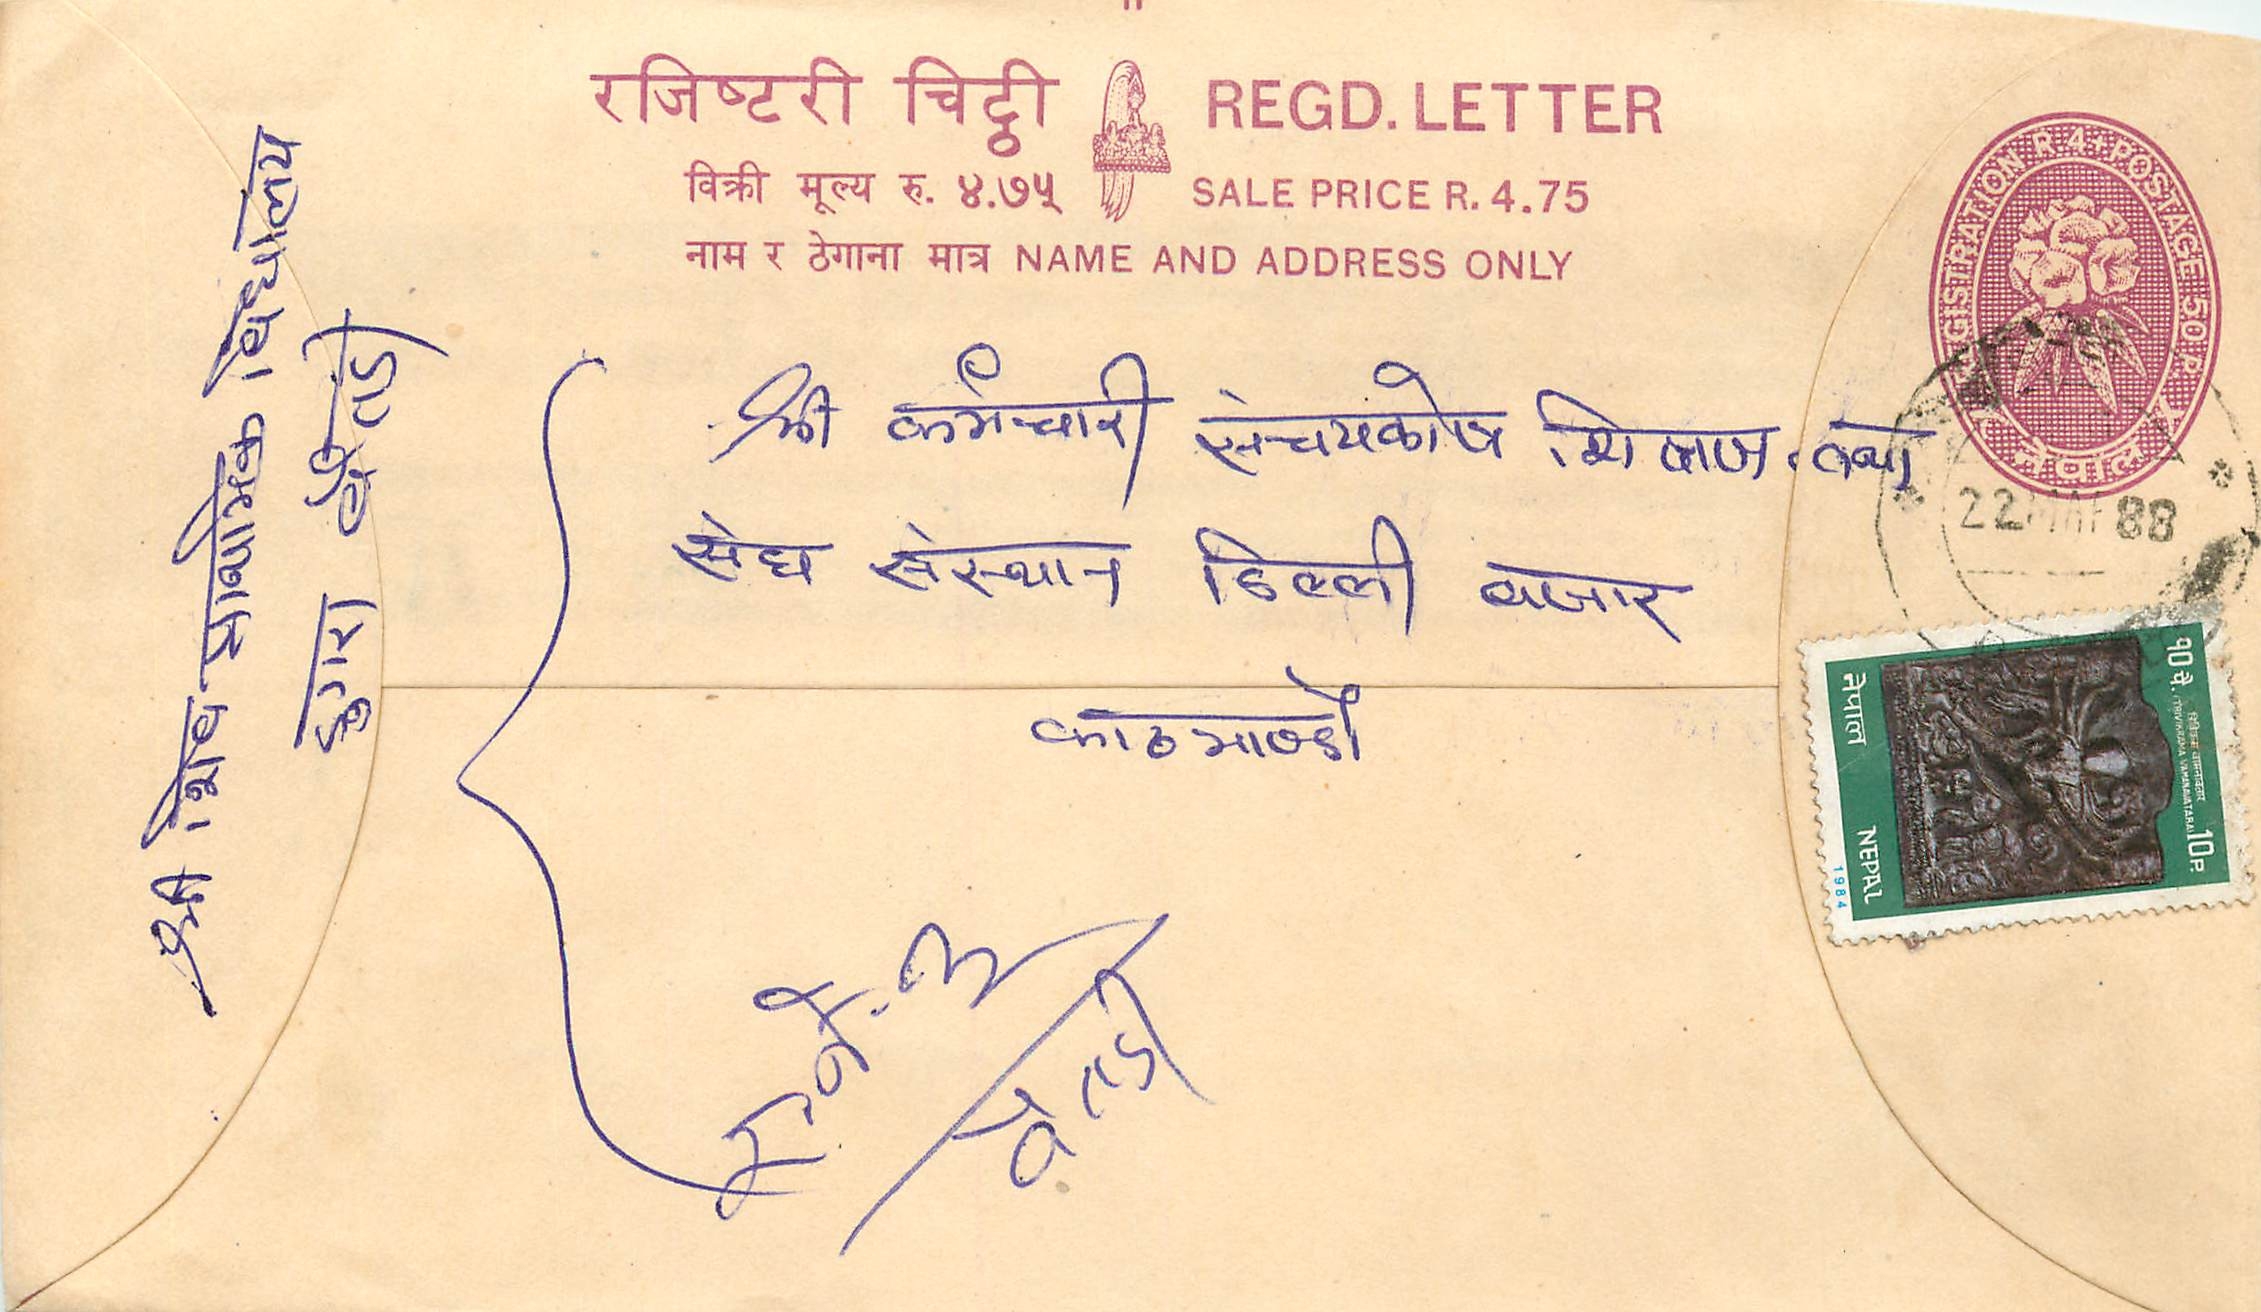 रजिष्टरी चिट्ठी REGD. LETTER
विक्री मूल्य रु. ४.७५ SALE PRICE R. 4.75
नाम र ठेगाना मात्र NAME AND ADDRESS ONLY
REGISTRATION R.4+POSTAGE 50 P.
नेपाल
श्री कर्मचारी संचयकोष
संघ संस्थान डिल्ली बजार
काठमाण्डौ
22 88
श्री शिव माध्यमिक विद्यालय
बैतडी
बैतडी
नेपाल NEPAL
१० पै. 10P.
त्रिविक्रम वामनावतार
(TRIVIKRAMA VAMANAVATARA)
1984